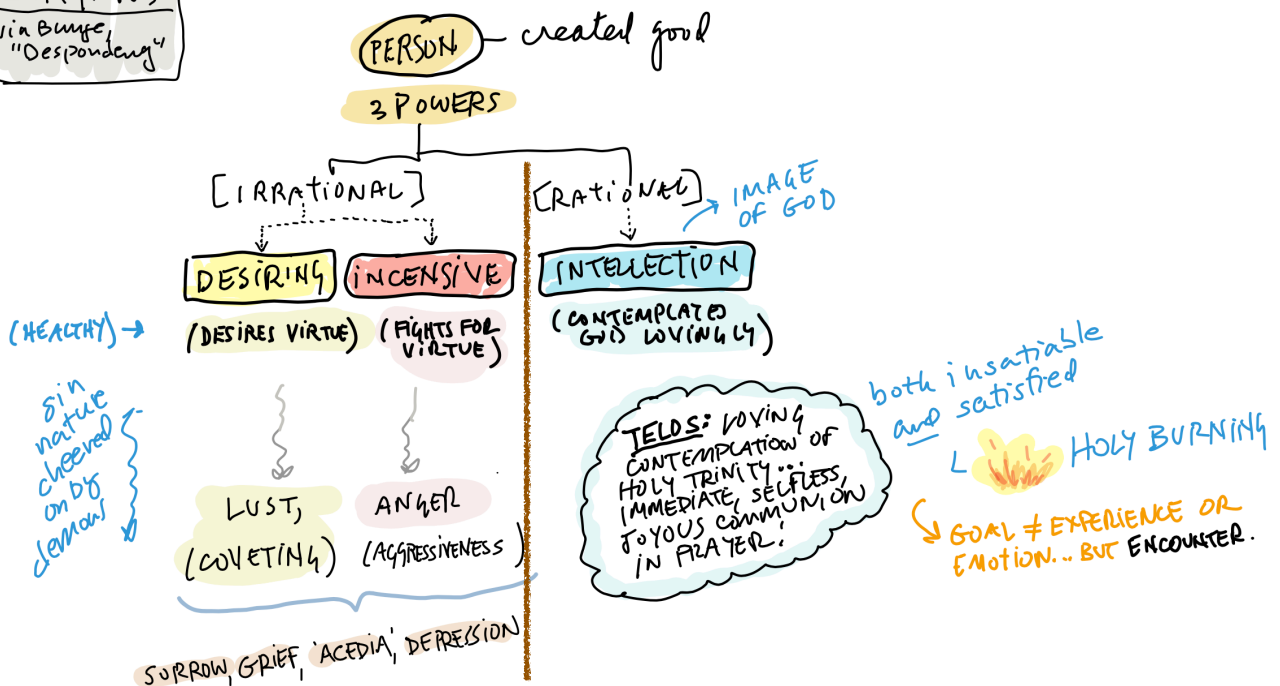 via Bunge,
"Despondency"
PERSON — created good
3 POWERS
[IRRATIONAL]
[RATIONAL]
IMAGE
OF GOD
DESIRING
INCENSIVE
INTELLECTION
(HEALTHY) →
(DESIRES VIRTUE)
(FIGHTS FOR
VIRTUE)
(CONTEMPLATES
GOD LOVINGLY)
sin
nature
cheered
on by
demons
LUST,
(COVETING)
ANGER
(AGGRESSIVENESS)
SORROW, GRIEF, 'ACEDIA', DEPRESSION
TELOS: LOVING
CONTEMPLATION OF
HOLY TRINITY...
IMMEDIATE, SELFLESS,
JOYOUS COMMUNION
IN PRAYER!
both insatiable
and satisfied
HOLY BURNING
GOAL ≠ EXPERIENCE OR
EMOTION... BUT ENCOUNTER.